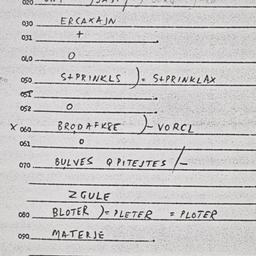 020
030 ERCAXAJN
031 +
040 O
050 S+PRINKLS )= S+PRINKLAX
051
052 O
X 060 BRODAFKEE )- VORCL
061 O
070 BULVES Q PITEJTES /-
ZGULE
080 BLOTER )= PLETER = PLOTER
090 MATERJE